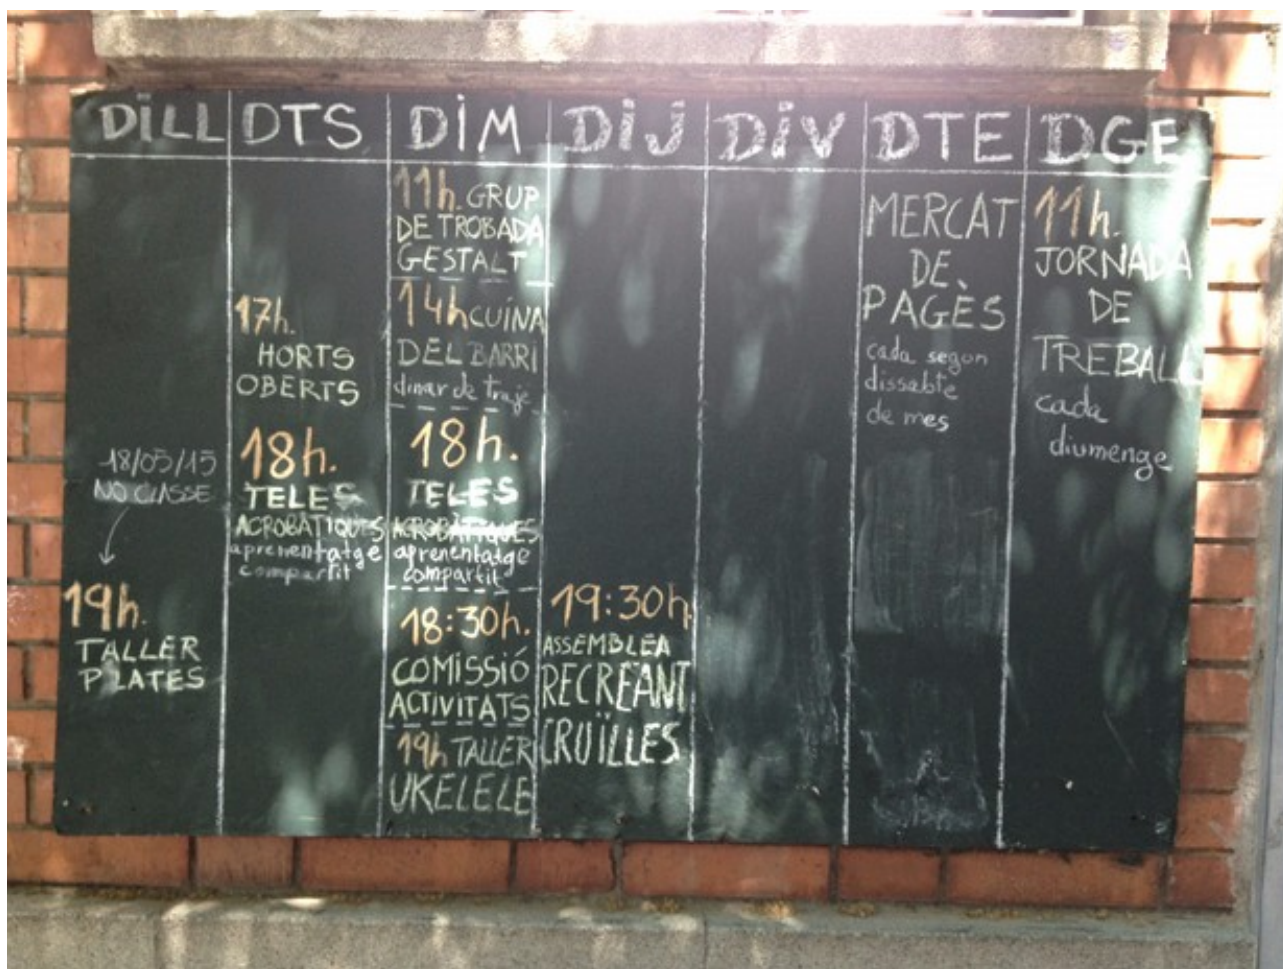 DILL DTS DIM DIJ DIV DTE DGE
18/05/15
NO CLASSE
19h.
TALLER
PILATES
17h.
HORTS
OBERTS
18h.
TELES
ACROBÀTIQUES
aprenentatge
compartit
11h. GRUP
DE TROBADA
GESTALT
14h CUINA
DEL BARRI
dinar de traje
18h.
TELES
ACROBÀTIQUES
aprenentatge
compartit
18:30h.
COMISSIÓ
ACTIVITATS
19h TALLER
UKELELE
19:30h.
ASSEMBLEA
RECREANT
CRUÏLLES
MERCAT
DE
PAGÈS
cada segon
dissabte
de mes
11h.
JORNADA
DE
TREBALL
cada
diumenge